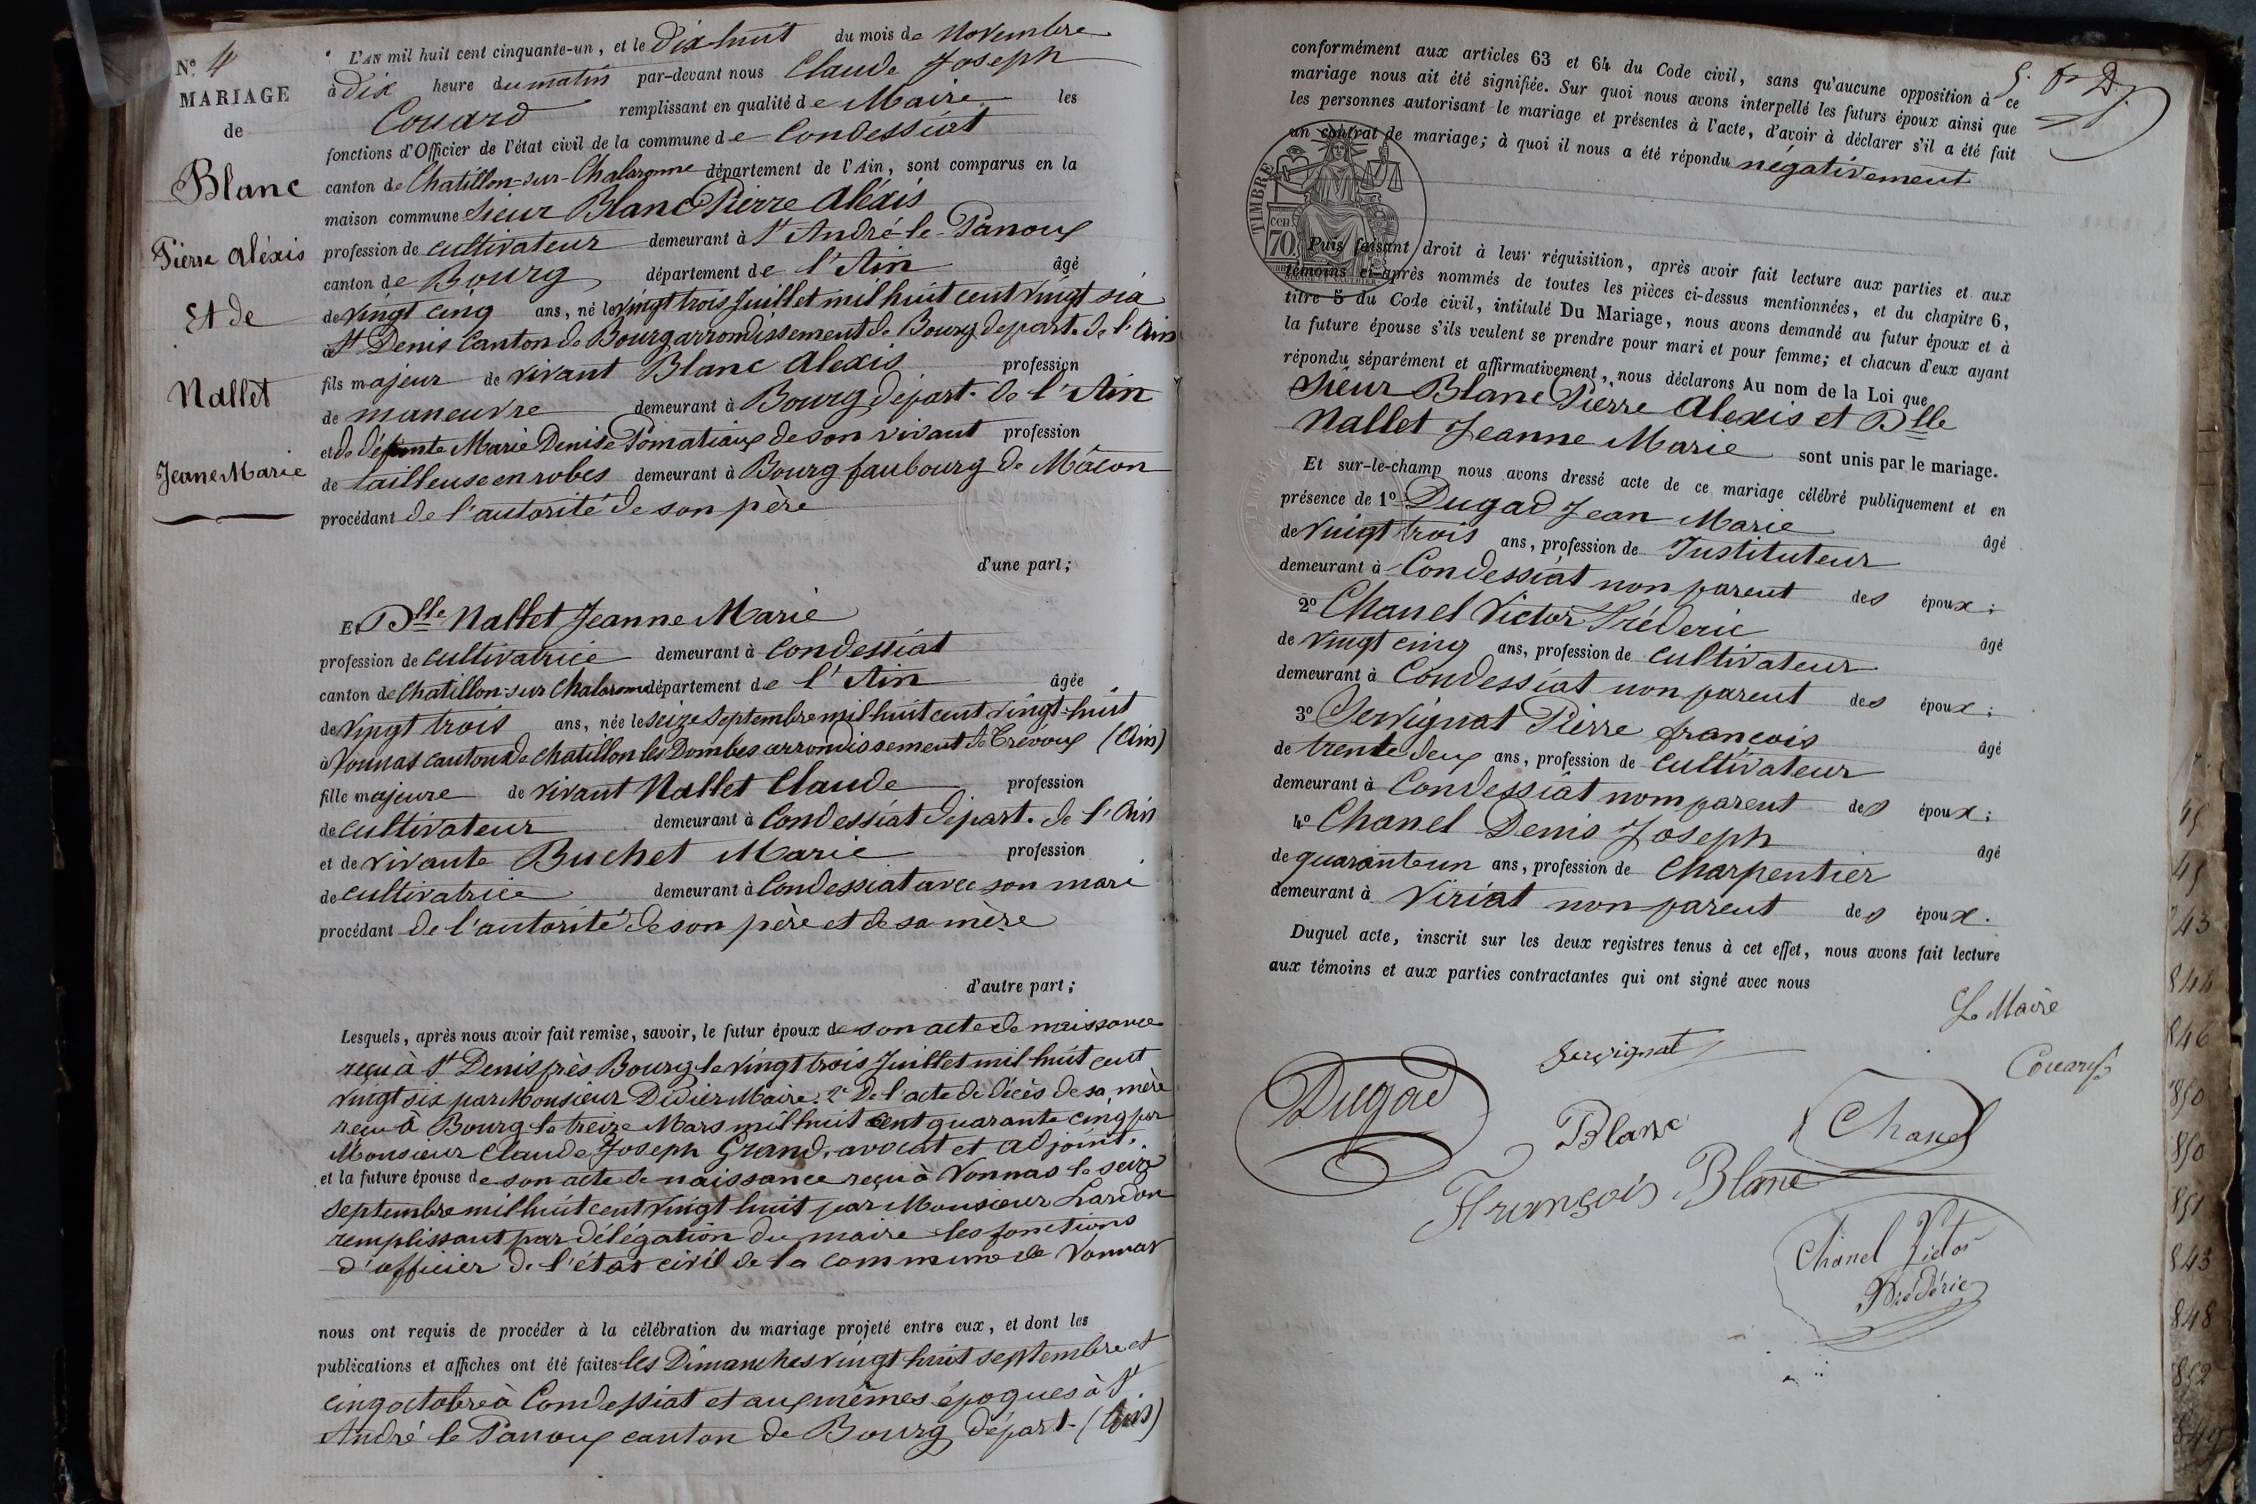 N° 4
MARIAGE
de
Blanc
Pierre Aléxis
Et de
Nallet
Jeane Marie
L'AN mil huit cent cinquante-un, et le Dix-huit du mois de Novembre
à Dix heure du matin par-devant nous Claude Joseph
Couard remplissant en qualité de Maire les
fonctions d'Officier de l'état civil de la commune de Condessiat
canton de Chatillon-sur-Chalaronne département de l'Ain, sont comparus en la
maison commune Sieur Blanc Pierre Aléxis
profession de cultivateur demeurant à St André-le-Panoux
canton de Bourg département de l'Ain âgé
de vingt cinq ans, né le vingt trois Juillet mil huit cent vingt six
à St Denis Canton de Bourg arrondissement de Bourg depart. de l'Ain
fils majeur de vivant Blanc Alexis profession
de maneuvre demeurant à Bourg Départ. de l'Ain
et de défunte Marie Denise Pomatiaux de son vivant profession
de tailleuse en robes demeurant à Bourg faubourg de Mâcon
procédant de l'autorité de son père
d'une part;
Et Dlle Nallet Jeanne Marie
profession de cultivatrice demeurant à Condessiat
canton de Chatillon-sur Chalaronne département de l'Ain âgée
de vingt trois ans, née le seize septembre mil huit cent vingt-huit
à Vonnas canton de Chatillon les Dombes arrondissement de Trévoux (Ain)
fille majeure de vivant Nallet Claude profession
de cultivateur demeurant à Condessiat départ. de l'Ain
et de vivante Buchet Marie profession
de cultivatrice demeurant à Condessiat avec son mari
procédant de l'autorité de son père et de sa mère
d'autre part;
Lesquels, après nous avoir fait remise, savoir, le futur époux de son acte de naissance
reçu à St Denis près Bourg le vingt trois Juillet mil huit cent
vingt six par Monsieur Didier Maire. 2° De l'acte de décès de sa mère
reçu à Bourg le treize Mars mil huit cent quarante cinq par
Monsieur Claude Joseph Grand, avocat et adjoint.
et la future épouse de son acte de naissance reçu à Vonnas le seize
septembre mil huit cent vingt huit par Monsieur Lardon
remplissant par délégation du maire les fonctions
d'officier de l'état civil de la commune de Vonnas
nous ont requis de procéder à la célébration du mariage projeté entre eux, et dont les
publications et affiches ont été faites les Dimanches vingt huit septembre et
cinq octobre à Condessiat et aux mêmes époques à St
André le Panoux canton de Bourg départ. (Ain)
conformément aux articles 63 et 64 du Code civil, sans qu'aucune opposition à ce
mariage nous ait été signifiée. Sur quoi nous avons interpellé les futurs époux ainsi que
les personnes autorisant le mariage et présentes à l'acte, d'avoir à déclarer s'il a été fait
un contrat de mariage; à quoi il nous a été répondu négativement
TIMBRE
70
Puis faisant droit à leur réquisition, après avoir fait lecture aux parties et aux
témoins ci-après nommés de toutes les pièces ci-dessus mentionnées, et du chapitre 6,
titre 5 du Code civil, intitulé Du Mariage, nous avons demandé au futur époux et à
la future épouse s'ils veulent se prendre pour mari et pour femme; et chacun d'eux ayant
répondu séparément et affirmativement, nous déclarons Au nom de la Loi que
Sieur Blanc Pierre Alexis et Dlle
Nallet Jeanne Marie sont unis par le mariage.
Et sur-le-champ nous avons dressé acte de ce mariage célébré publiquement et en
présence de 1° Dugad Jean Marie âgé
de vingt trois ans, profession de Instituteur
demeurant à Condessiat non parent des époux;
2° Chanel Victor Fréderic âgé
de vingt cinq ans, profession de cultivateur
demeurant à Condessiat non parent des époux;
3° Servignat Pierre françois âgé
de trente deux ans, profession de cultivateur
demeurant à Condessiat nom parent des époux;
4° Chanel Denis Joseph âgé
de quarante un ans, profession de Charpentier
demeurant à Viriat non parent des époux.
Duquel acte, inscrit sur les deux registres tenus à cet effet, nous avons fait lecture
aux témoins et aux parties contractantes qui ont signé avec nous
Le Maire
Servignat
Couard
Dugad
Blanc
Chanel
François Blanc
Chanel Victor
Frédéric